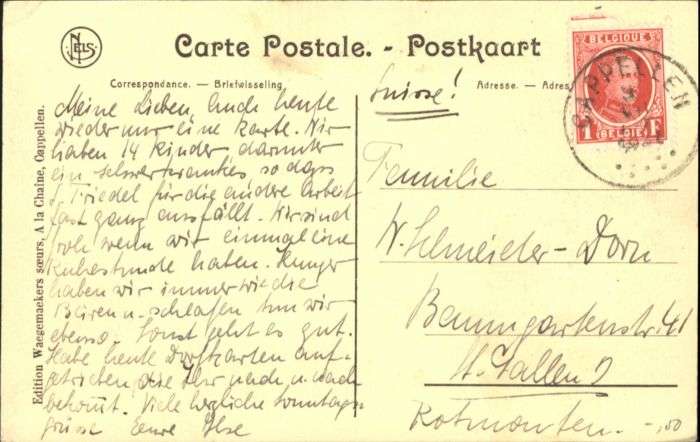 NELS
Carte Postale. - Postkaart
Correspondance. — Briefwisseling
Adresse. — Adres
Edition Waegemaekers sœurs, A la Chaine, Cappellen.
BELGIQUE
1 F
BELGIË
CAPPELLEN
Meine Lieben, Auch heute
wieder nur eine Karte. Wir
haben 14 Kinder darunter
ein schwerkrankes, so dass
Friedel für die andere Arbeit
fast ganz ausfällt. Wir sind
froh wenn wir einmal eine
Ruhestunde haben. Hunger
haben wir immer wie die
Bären u. schlafen tun wir
ebenso. Sonst geht es gut.
Habe heute Dorfkarten auf-
getrieben, die Ihr nach u. nach
bekommt. Viele herzliche Sonntags-
grüsse Eure Ilse
Suisse!
Familie
W. Schmeider-Dorn
Baumgartenstr 41
St. Gallen
Rotmonten.